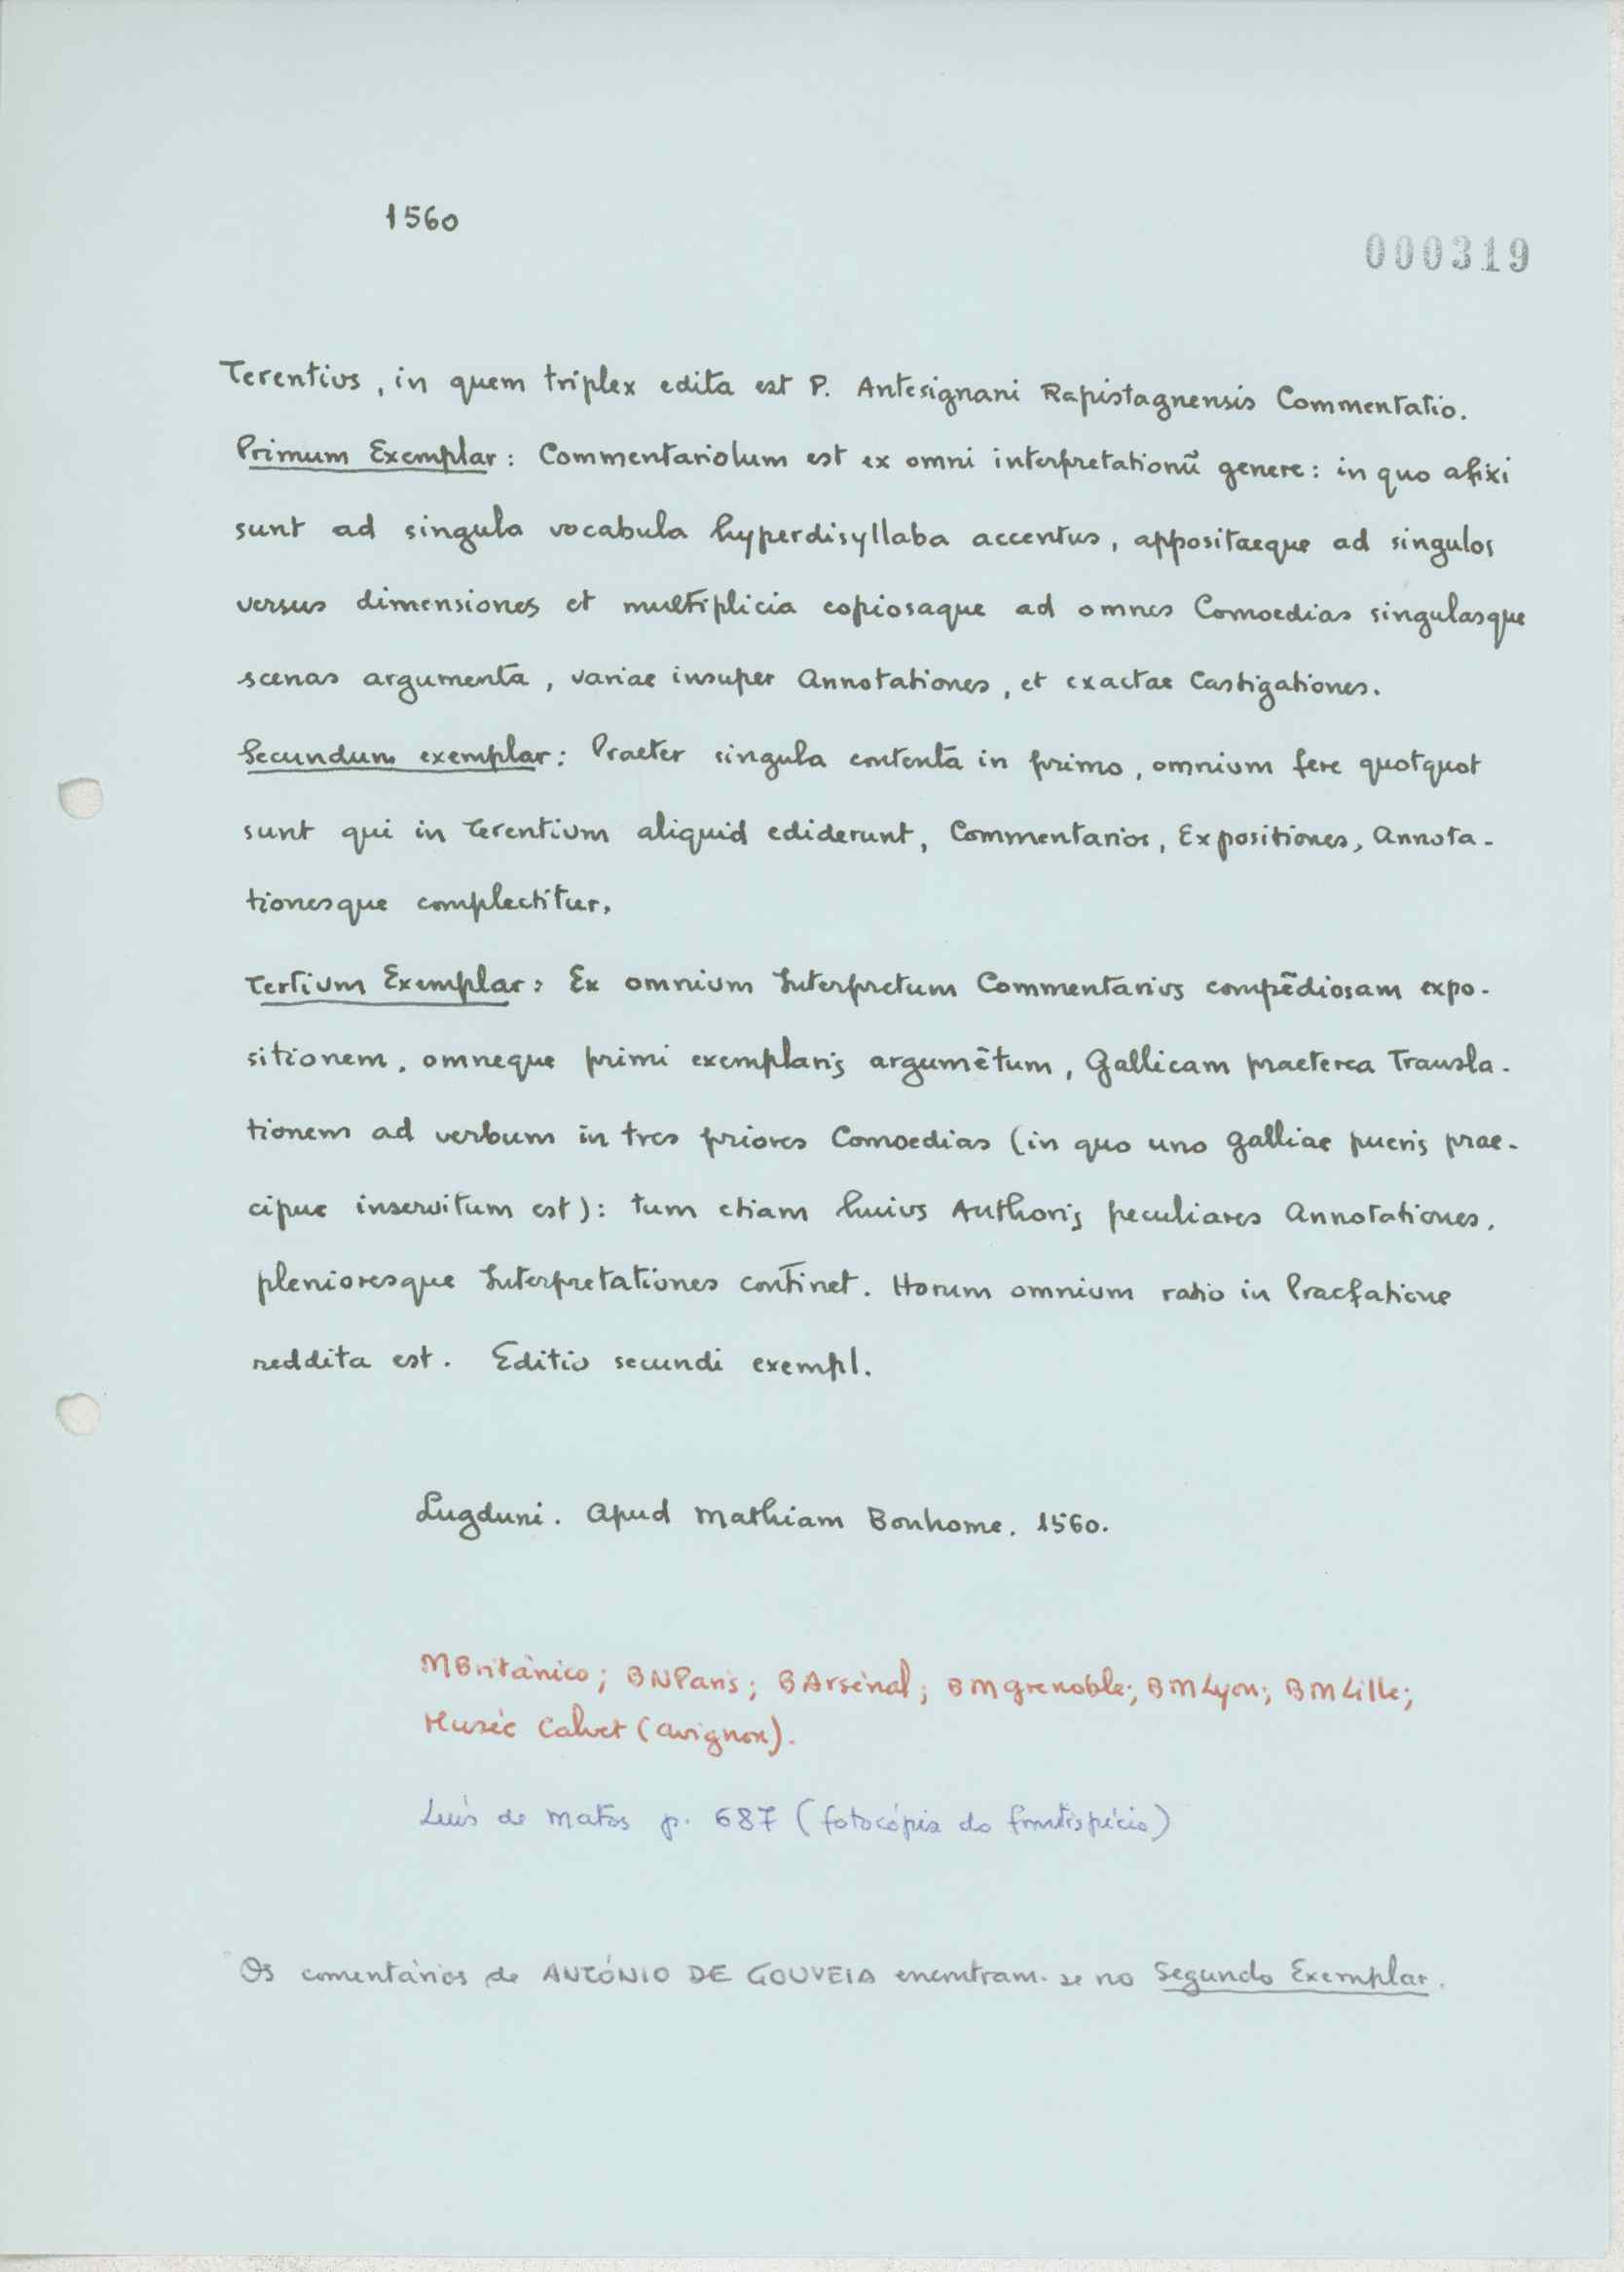 1560
000319
Terentius, in quem triplex edita est P. Antesignani Rapistagnensis Commentatio.
Primum Exemplar: Commentariolum est ex omni interpretationũ genere: in quo afixi
sunt ad singula vocabula hyperdisyllaba accentus, appositaeque ad singulos
versus dimensiones et multiplicia copiosaque ad omnes Comoedias singulasque
scenas argumenta, variae insuper Annotationes, et exactae Castigationes.
Secundum exemplar: Praeter singula contenta in primo, omnium fere quotquot
sunt qui in Terentium aliquid ediderunt, Commentarios, Expositiones, Annota-
tionesque complectitur.
Tertium Exemplar: Ex omnium Interpretum Commentarius compẽdiosam expo-
sitionem, omneque primi exemplaris argumẽtum, Gallicam praeterea Transla-
tionem ad verbum in tres priores Comoedias (in quo uno Galliae pueris prae-
cipue inservitum est): tum etiam huius Authoris peculiares Annotationes,
plenioresque Interpretationes continet. Horum omnium ratio in Praefatione
reddita est. Editio secundi exempl.
Lugduni. Apud Mathiam Bonhome. 1560.
MBritânico; BNParis; BArsénal; BMGrenoble; BMLyon; BMLille;
Musée Calvet (Avignon).
Luís de Matos p. 687 (fotocópia do frontispício)
Os comentários de ANTÓNIO DE GOUVEIA encontram-se no Segundo Exemplar.